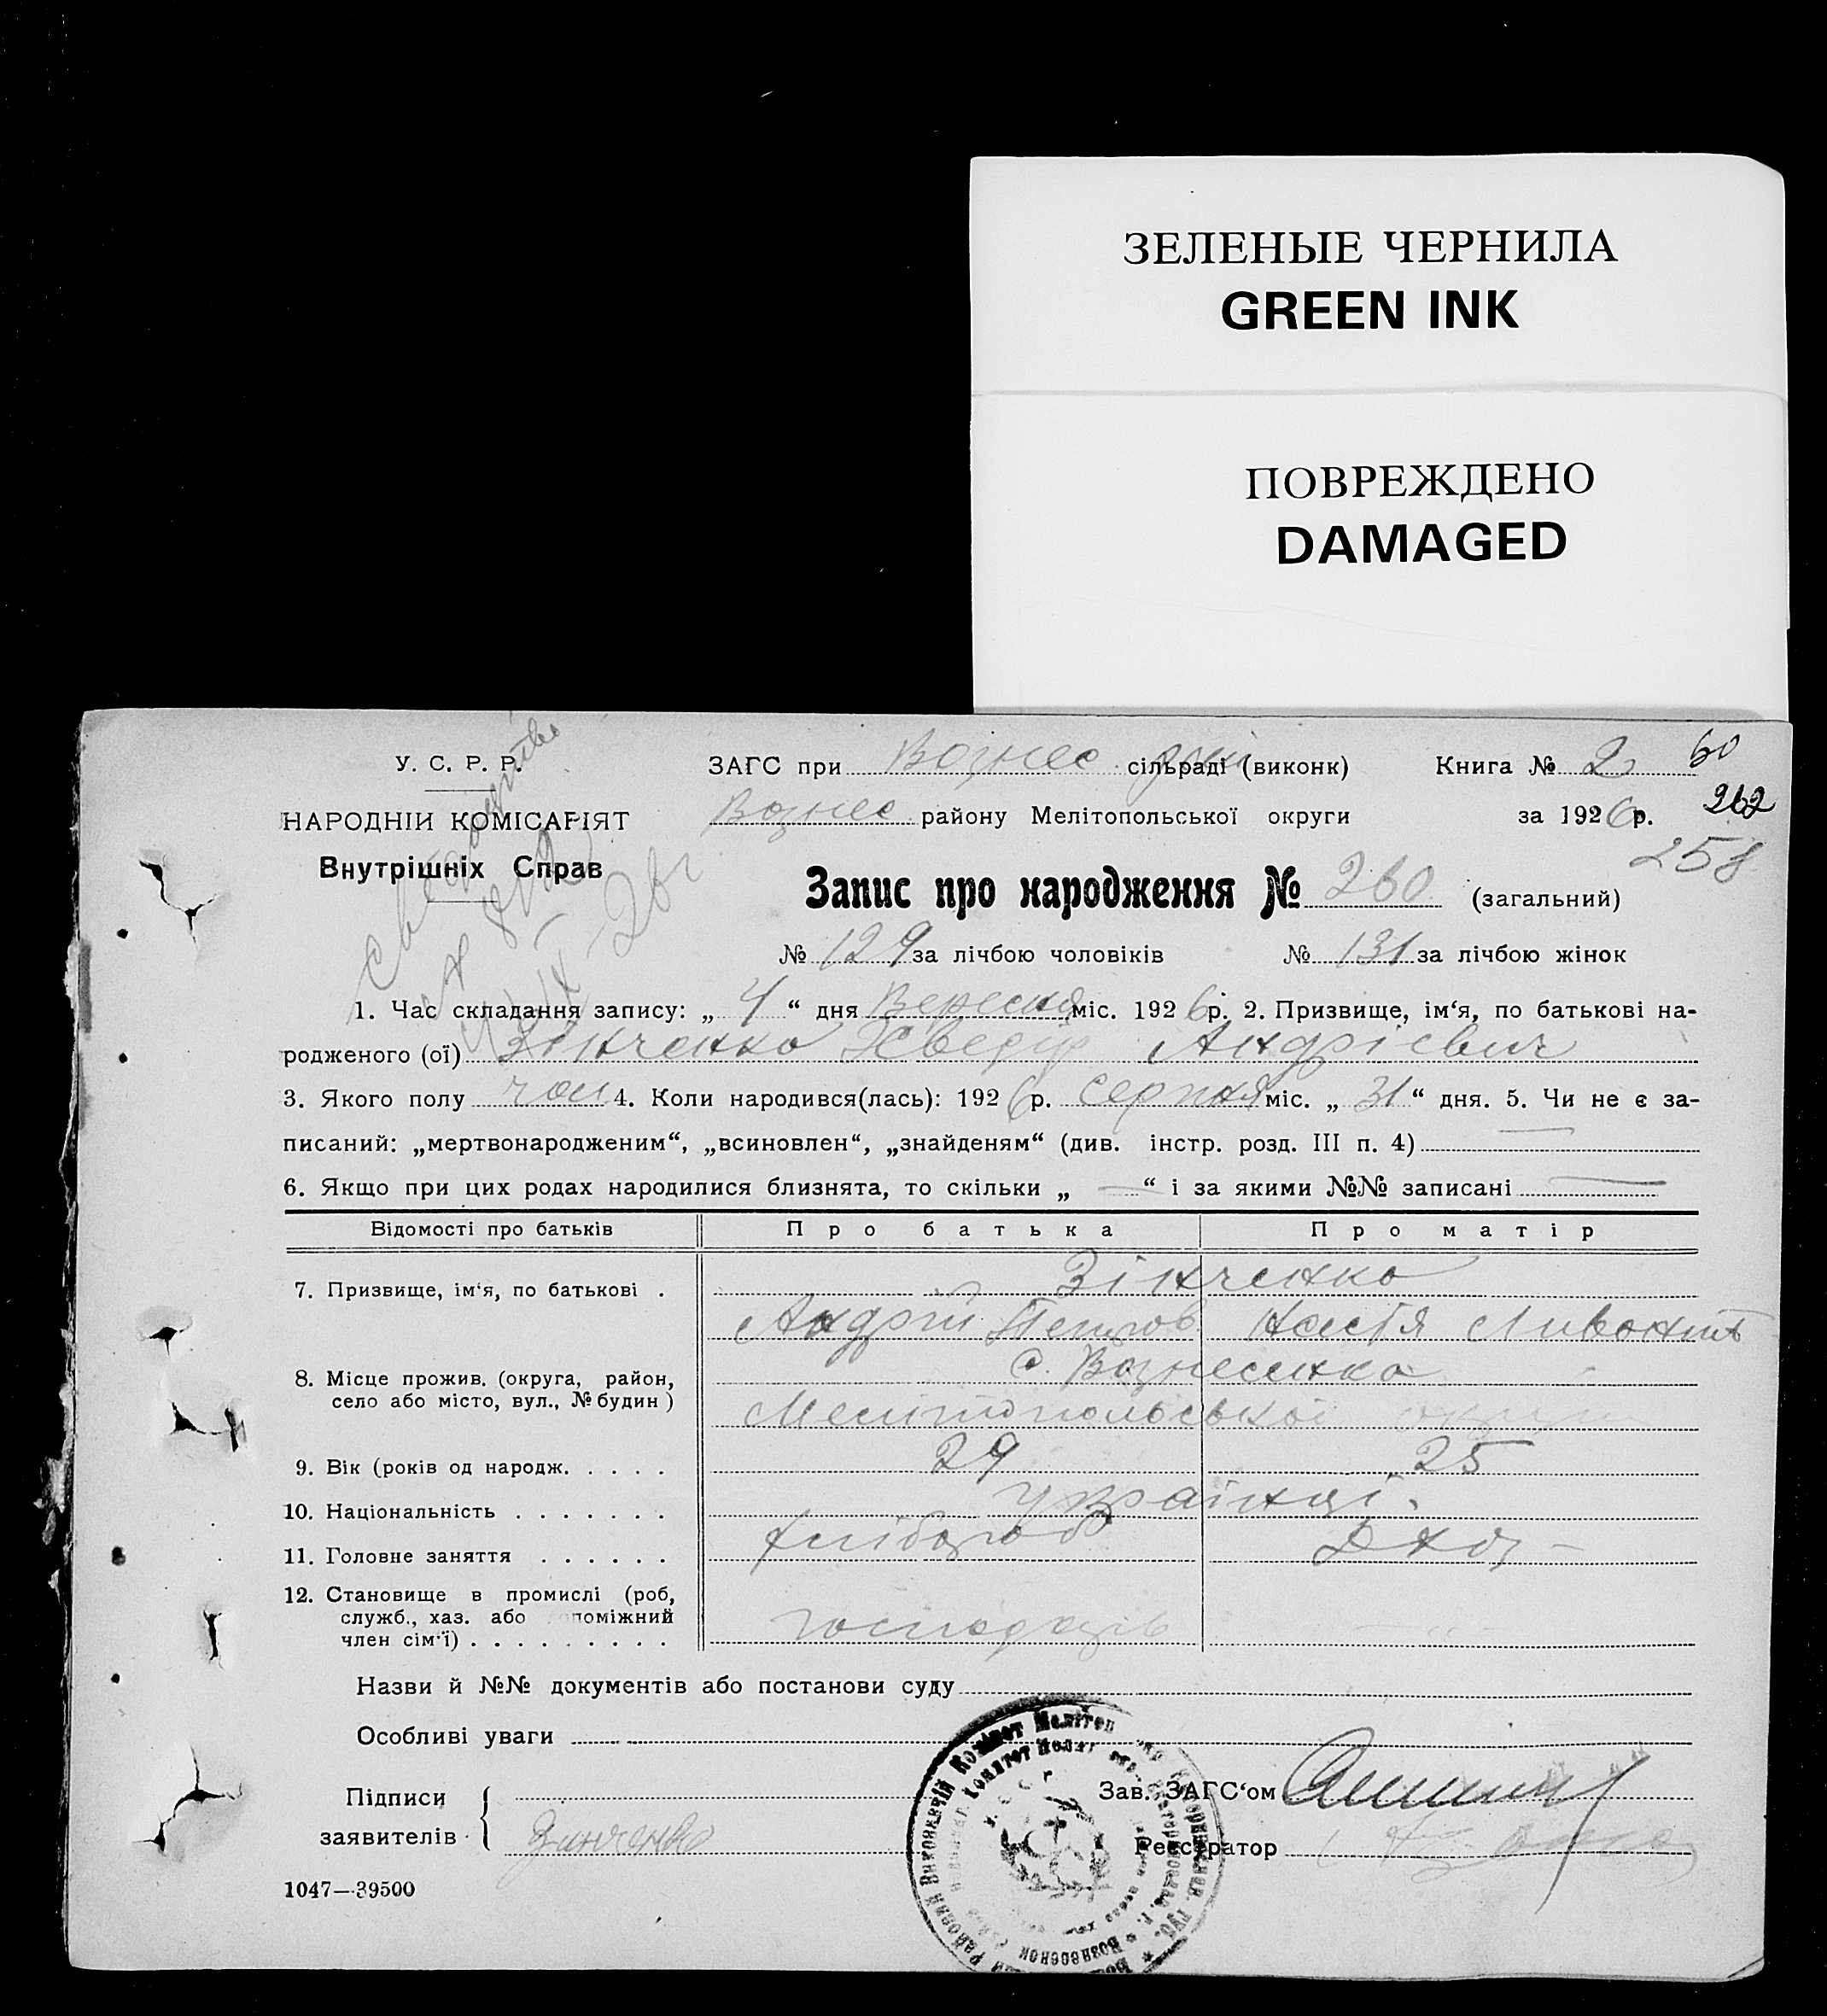 ЗЕЛЕНЫЕ ЧЕРНИЛА
GREEN INK
ПОВРЕЖДЕНО
DAMAGED
У. С. Р. Р.
НАРОДНІЙ КОМІСАРІЯТ
Внутрішніх Справ
ЗАГС при Вознес сільраді (виконк) Книга № 2 60
Вознес району Мелітопольської округи за 1926 р. 262
258
Запис про народження № 260 (загальний)
№ 129 за лічбою чоловіків № 131 за лічбою жінок
1. Час складання запису: „ 4 “ дня Вересня міс. 1926 р. 2. Призвище, ім‘я, по батькові на-
родженого (ої) Зінченко Андрієвич
3. Якого полу чол 4. Коли народився(лась): 1926 р. Серпня міс. „ 31 “ дня. 5. Чи не є за-
писаний: „мертвонародженим“, „всиновлен“, „знайденям“ (див. інстр. розд. III п. 4) —
6. Якщо при цих родах народилися близнята, то скільки „ — “ і за якими №№ записані —
Відомості про батьків Про батька Про матір
7. Призвище, ім‘я, по батькові . Зінченко
Андрій Петров Настя
8. Місце прожив. (округа, район, с. Вознесенка
село або місто, вул., № будин) Мелітопольської округи
9. Вік (років од народж. . . . . 29 25
10. Національність . . . . . . . Українці.
11. Головне заняття . . . . . . Хлібороб
12. Становище в промислі (роб,
служб., хаз. або поміжний
член сім‘ї) . . . . . . . . . господарів — „ —
Назви й №№ документів або постанови суду
Особливі уваги
Підписи
заявителів Зинченко
Зав. ЗАГС‘ом
Реєстратор
1047—39500